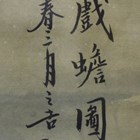 戲蟾圖
春三月之吉